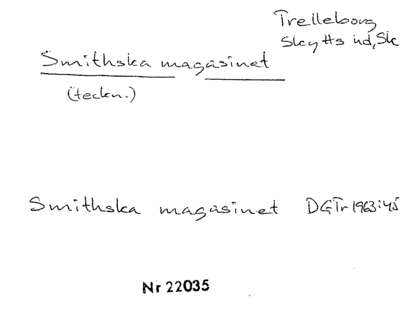 Trelleborg
Skytts hd, Sk
Smithska magasinet
(teckn.)
Smithska magasinet DGTr 1963:45
Nr 22035